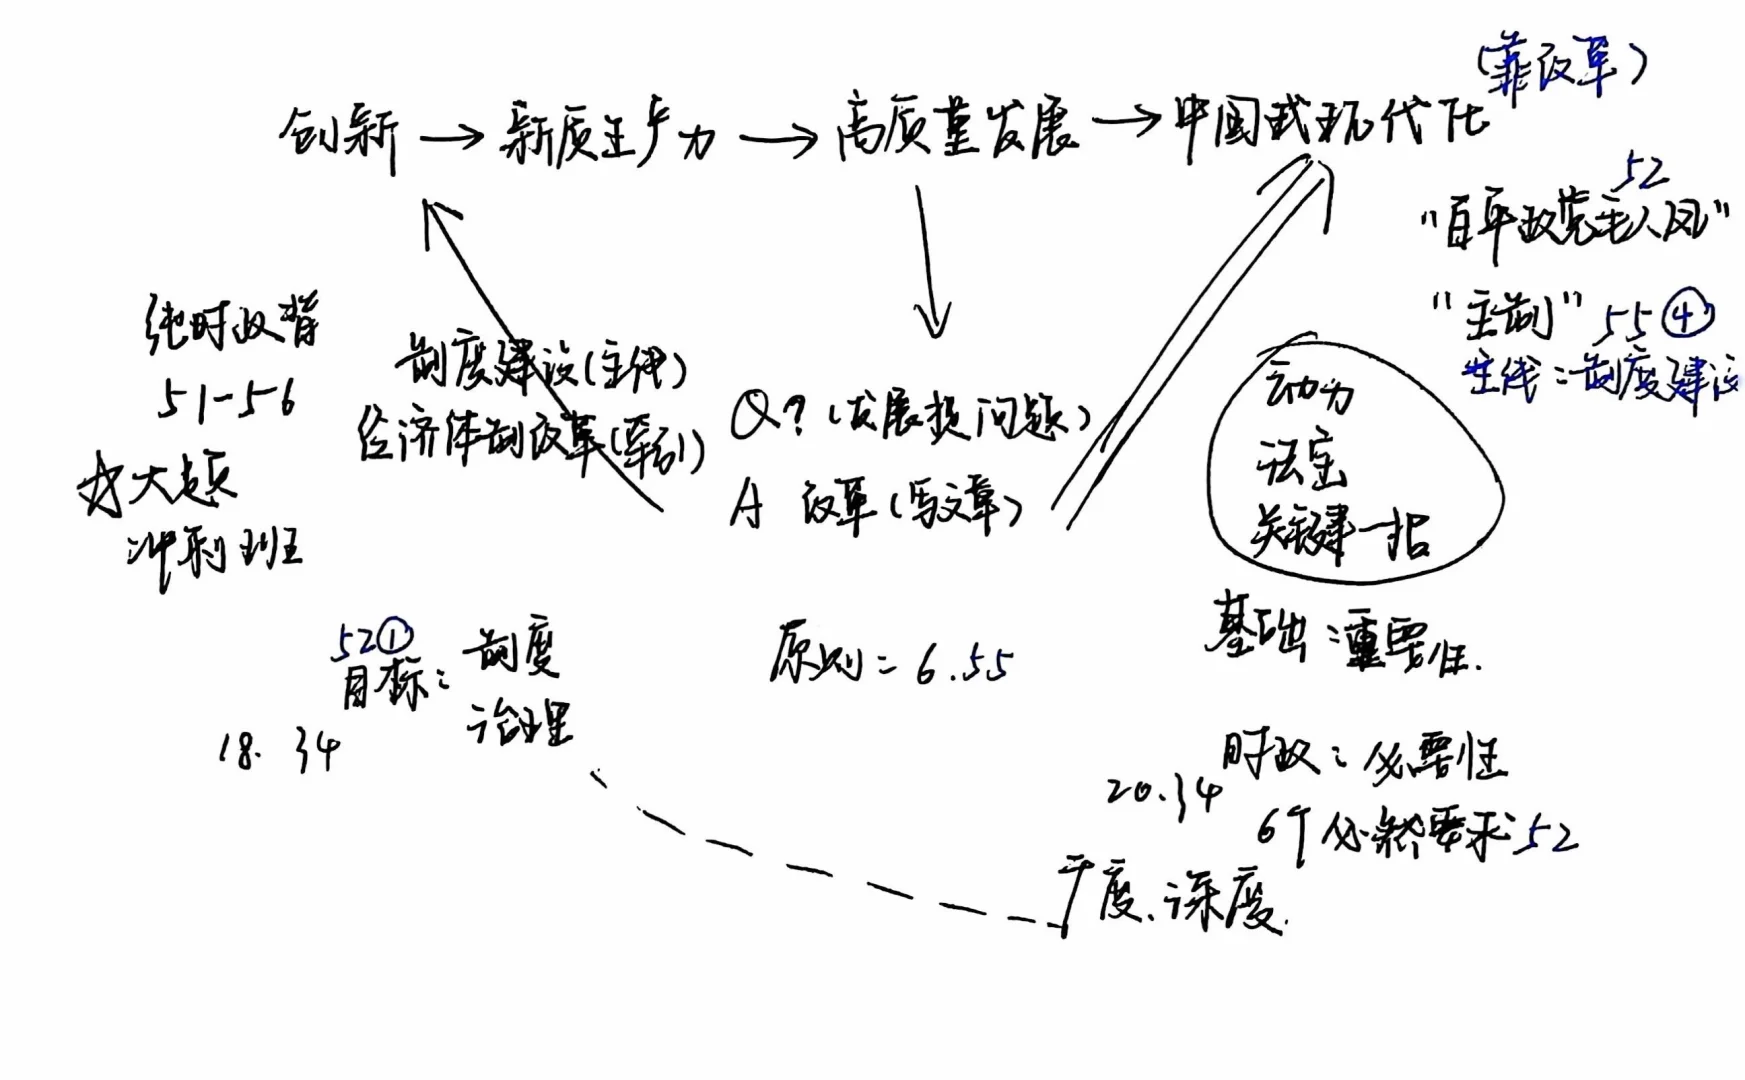 (靠改革)
创新 → 新质生产力 → 高质量发展 → 中国式现代化
52
"百年政党主人风"
"主制" 55④
主线：制度建设
纯时政背
51-56
大题
冲刺班
制度建设(主线)
经济体制改革(牵引)
Q?(发展提问题)
A 改革(写文章)
动力
法宝
关键一招
基础：重要性.
52①
目标：制度
治理
18. 34
原则：6.55
时政：必要性
20.34
6个必然要求52
广度、深度.